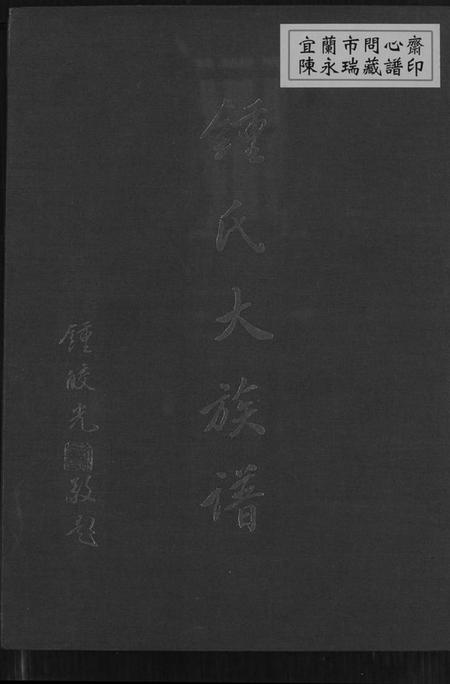 宜蘭市問心齋
陳永瑞藏譜印
鍾氏大族譜
鍾皎光
敬題